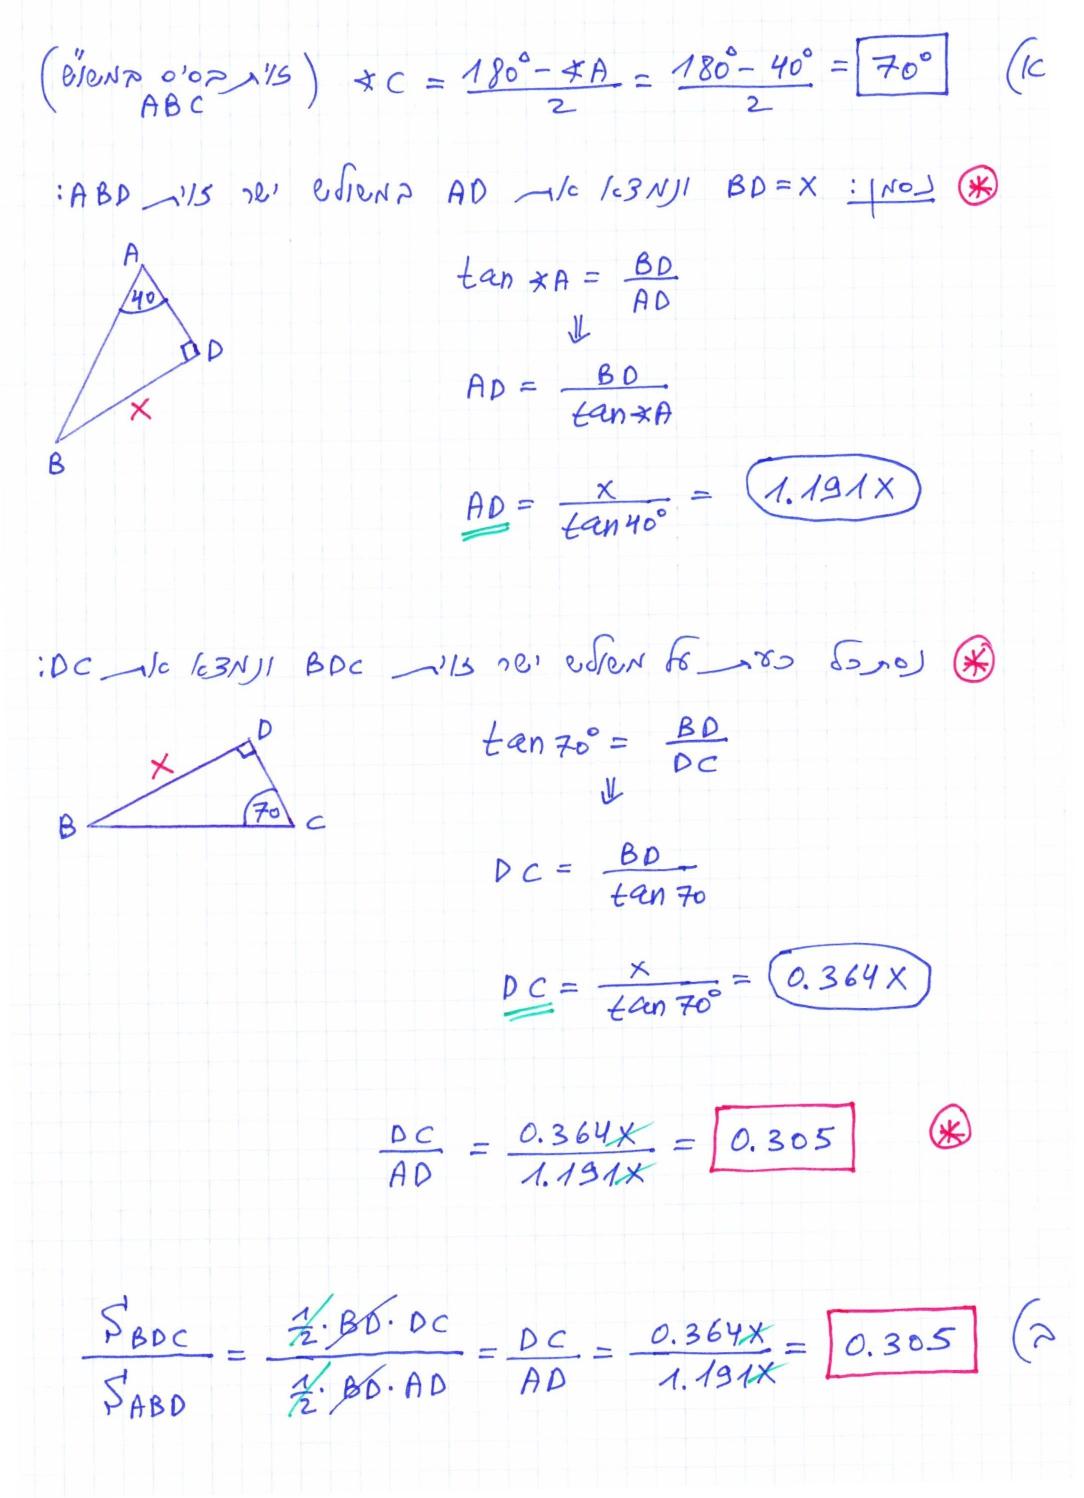 א) ∢C = (180° - ∢A)/2 = (180° - 40°)/2 = 70° (זוית בסיס במשו"ש ABC)
⊛ נסמן: BD = X ונמצא את AD במשולש ישר זוית ABD:
A
40
D
X
B
tan ∢A = BD/AD
⇓
AD = BD/tan∢A
AD = X/tan40° = 1.191X
⊛ נסתכל כעת על משולש ישר זוית BDC ונמצא את DC:
D
X
B
70
C
tan 70° = BD/DC
⇓
DC = BD/tan 70
DC = X/tan 70° = 0.364X
⊛ DC/AD = 0.364X/1.191X = 0.305
ב) S BDC/S ABD = (1/2 · BD · DC)/(1/2 · BD · AD) = DC/AD = 0.364X/1.191X = 0.305